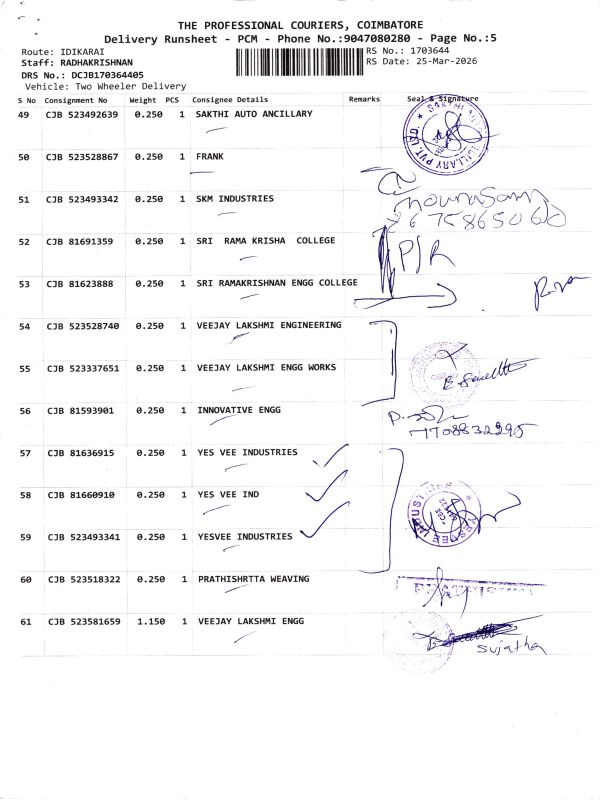 THE PROFESSIONAL COURIERS, COIMBATORE
Delivery Runsheet - PCM - Phone No.:9047080280 - Page No.:5
Route: IDIKARAI
RS No.: 1703644
Staff: RADHAKRISHNAN
RS Date: 25-Mar-2026
DRS No.: DCJB170364405
Vehicle: Two Wheeler Delivery
S No Consignment No Weight PCS Consignee Details Remarks Seal & Signature
49 CJB 523492639 0.250 1 SAKTHI AUTO ANCILLARY
50 CJB 523528867 0.250 1 FRANK
51 CJB 523493342 0.250 1 SKM INDUSTRIES
52 CJB 81691359 0.250 1 SRI RAMA KRISHA COLLEGE P/R
53 CJB 81623888 0.250 1 SRI RAMAKRISHNAN ENGG COLLEGE
54 CJB 523528740 0.250 1 VEEJAY LAKSHMI ENGINEERING
55 CJB 523337651 0.250 1 VEEJAY LAKSHMI ENGG WORKS
56 CJB 81593901 0.250 1 INNOVATIVE ENGG
7708832295
57 CJB 81636915 0.250 1 YES VEE INDUSTRIES
58 CJB 81660910 0.250 1 YES VEE IND
59 CJB 523493341 0.250 1 YESVEE INDUSTRIES
60 CJB 523518322 0.250 1 PRATHISHRTTA WEAVING
61 CJB 523581659 1.150 1 VEEJAY LAKSHMI ENGG
Sujatha